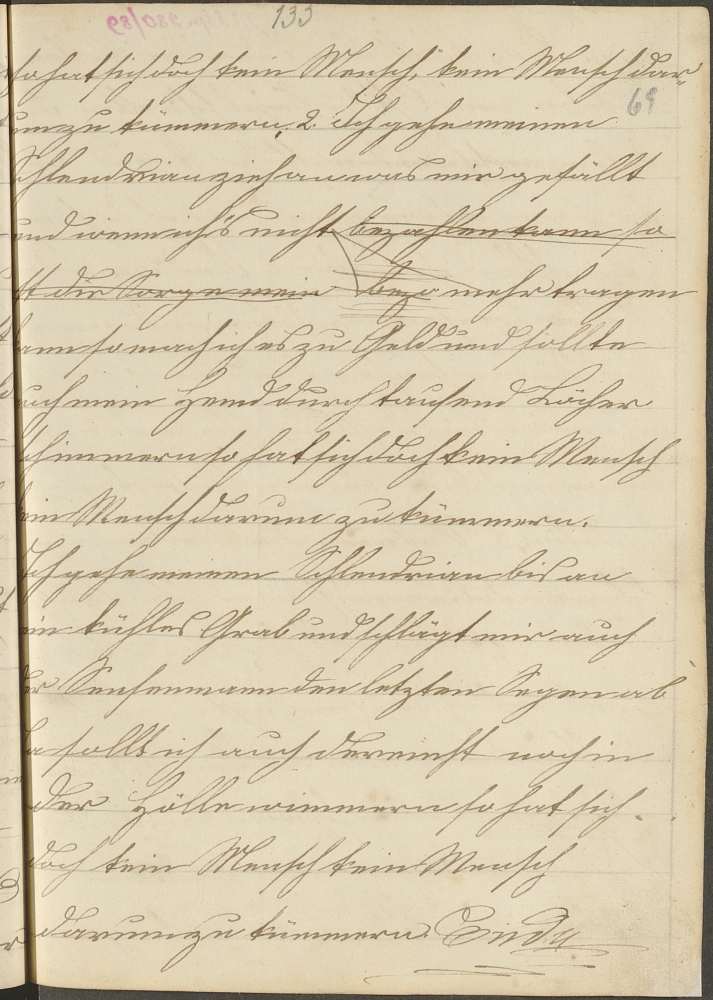 133
980/89
69
so hat sich doch kein Mensch, kein Mensch dar-
um zu kümmern. 2. Ich gehe meinen
Schlendrian zieh an was mir gefällt
und wenn ich's nicht bezahlen kann so
ist die Sorge mein bezo mehr tragen
kann so mach ich es zu Geld und sollte
auch mein Hemd durch tausend Löcher
schimmern so hat sich doch kein Mensch
kein Mensch darum zu kümmern.
Ich gehe meinen Schlendrian bis an
ein kühles Grab und schlägt mir auch
der Sensenmann den letzten Segen ab
ja sollt ich auch dereinst noch in
der Hölle wimmern so hat sich
doch kein Mensch kein Mensch
darum zu kümmern. Ende